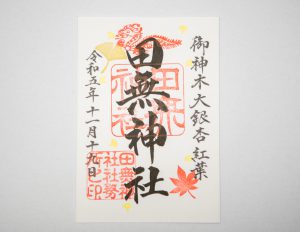 御神木大銀杏紅葉
田無神社
令和五年十一月十九日
田無
神社